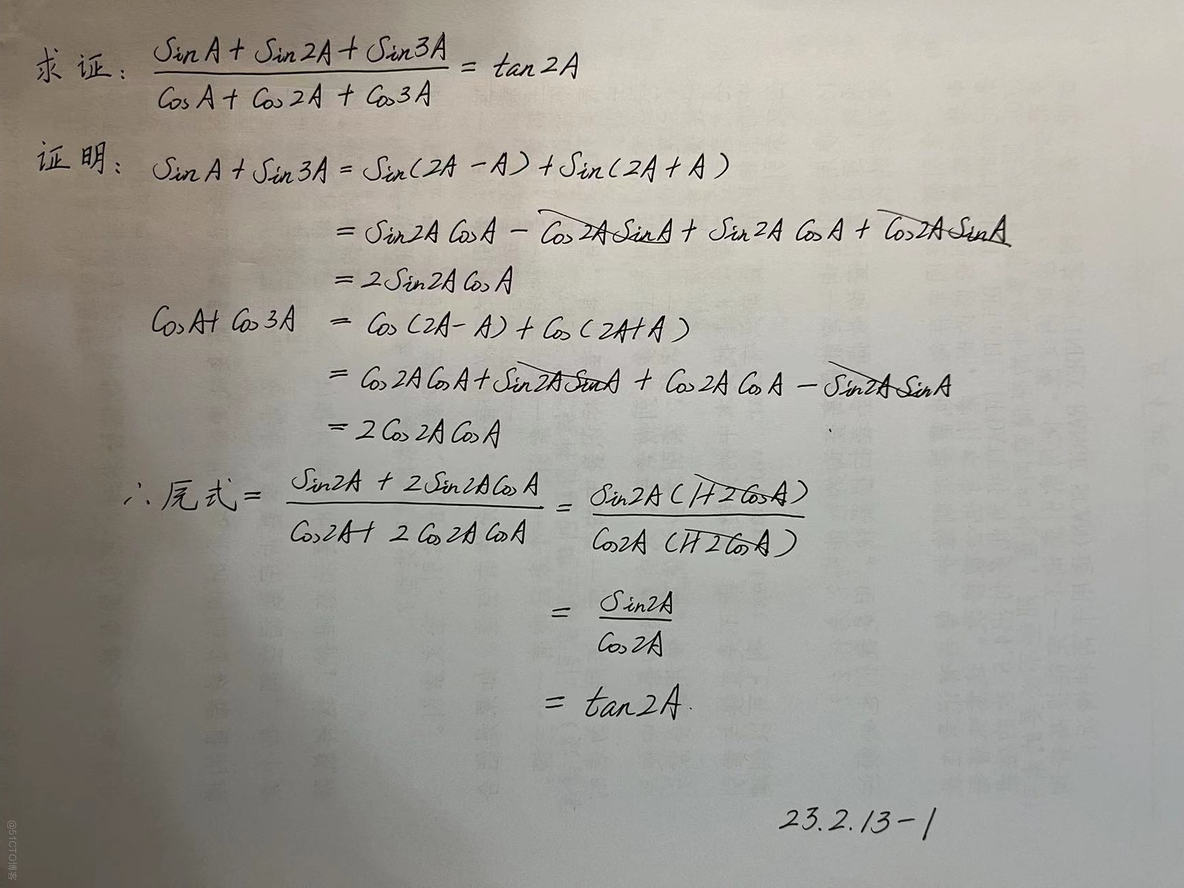 求证: (SinA + Sin2A + Sin3A)/(CosA + Cos2A + Cos3A) = tan2A
证明: SinA + Sin3A = Sin(2A - A) + Sin(2A + A)
= Sin2A CosA - Cos2A SinA + Sin2A CosA + Cos2A SinA
= 2Sin2A CosA
CosA + Cos3A = Cos(2A - A) + Cos(2A + A)
= Cos2A CosA + Sin2A SinA + Cos2A CosA - Sin2A SinA
= 2Cos2A CosA
∴ 原式 = (Sin2A + 2Sin2A CosA)/(Cos2A + 2Cos2A CosA) = Sin2A(1+2CosA)/Cos2A(1+2CosA)
= Sin2A/Cos2A
= tan2A.
23.2.13-1
@51CTO博客